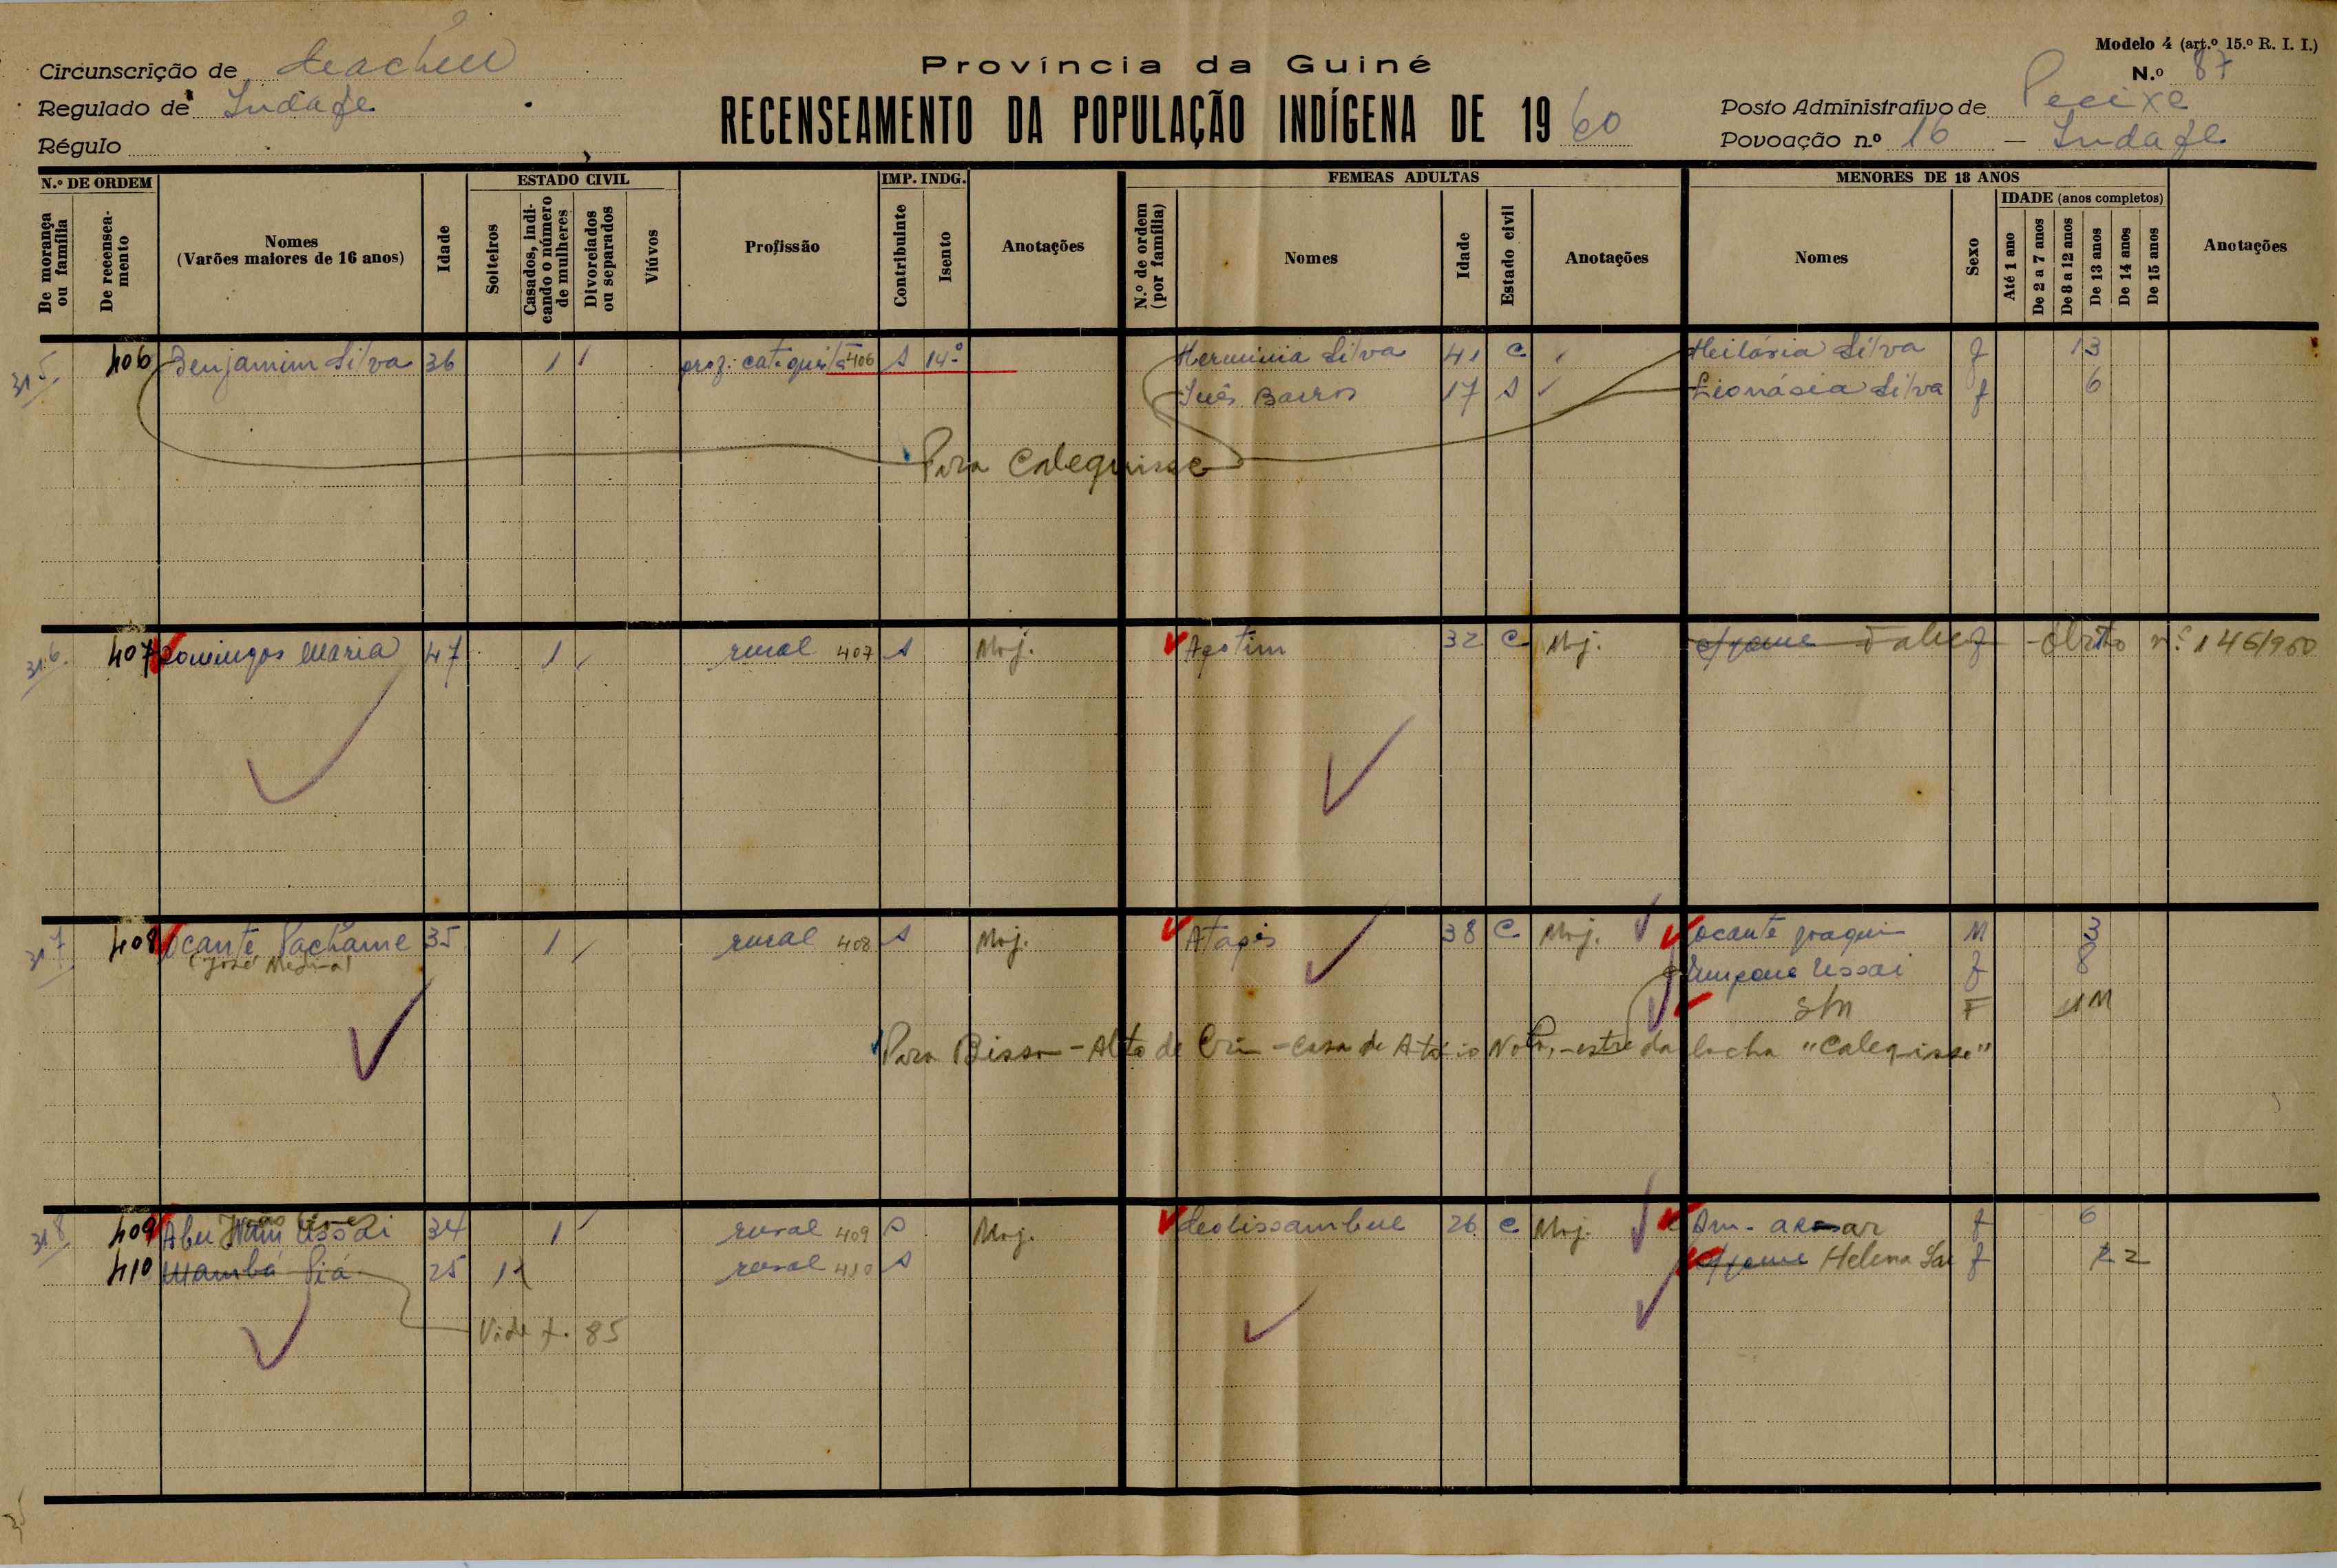 Modelo 4 (art.º 15.º R. I. I.)
Província da Guiné
N.º 87
Circunscrição de
Regulado de Indafe
Régulo
RECENSEAMENTO DA POPULAÇÃO INDÍGENA DE 1960
Posto Administrativo de Pecixe
Povoação n.º 16 — Indafe
N.º DE ORDEM
De morança ou família
De recenseamento
Nomes
(Varões maiores de 16 anos)
Idade
ESTADO CIVIL
Solteiros
Casados, indicando o número de mulheres
Divorciados ou separados
Viúvos
Profissão
IMP. INDG.
Contribuinte
Isento
Anotações
FEMEAS ADULTAS
N.º de ordem (por família)
Nomes
Idade
Estado civil
Anotações
MENORES DE 18 ANOS
Nomes
Sexo
IDADE (anos completos)
Até 1 ano
De 2 a 7 anos
De 8 a 12 anos
De 13 anos
De 14 anos
De 15 anos
Anotações
315 406 Benjamim Silva 36 1 prof: catequista 406 S 14º Hermínia Silva 41 C Heilária Silva f 13
Inês Barros 17 S Lionásia Silva f 6
Para Calequisse
316 407 Domingos Maria 47 1 rural 407 S Moj. Agotim 32 C Moj. s/nome f Óbito nº 146/960
317 408 Ocante Pachame 35 1 rural 408 S Moj. Atagis 38 C Moj. Ocante Joaquim M 3
(José Medina) Ussai f 8
S/n F
Para Bissau - Alto de Crim - casa de - locha "Calequisse"
318 409 Abu Ussai 34 1 rural 409 S Moj. 26 C Moj. f 6
410 Mambá Piá 25 1 rural 410 S s/nome Helena f 2
Vide f. 85